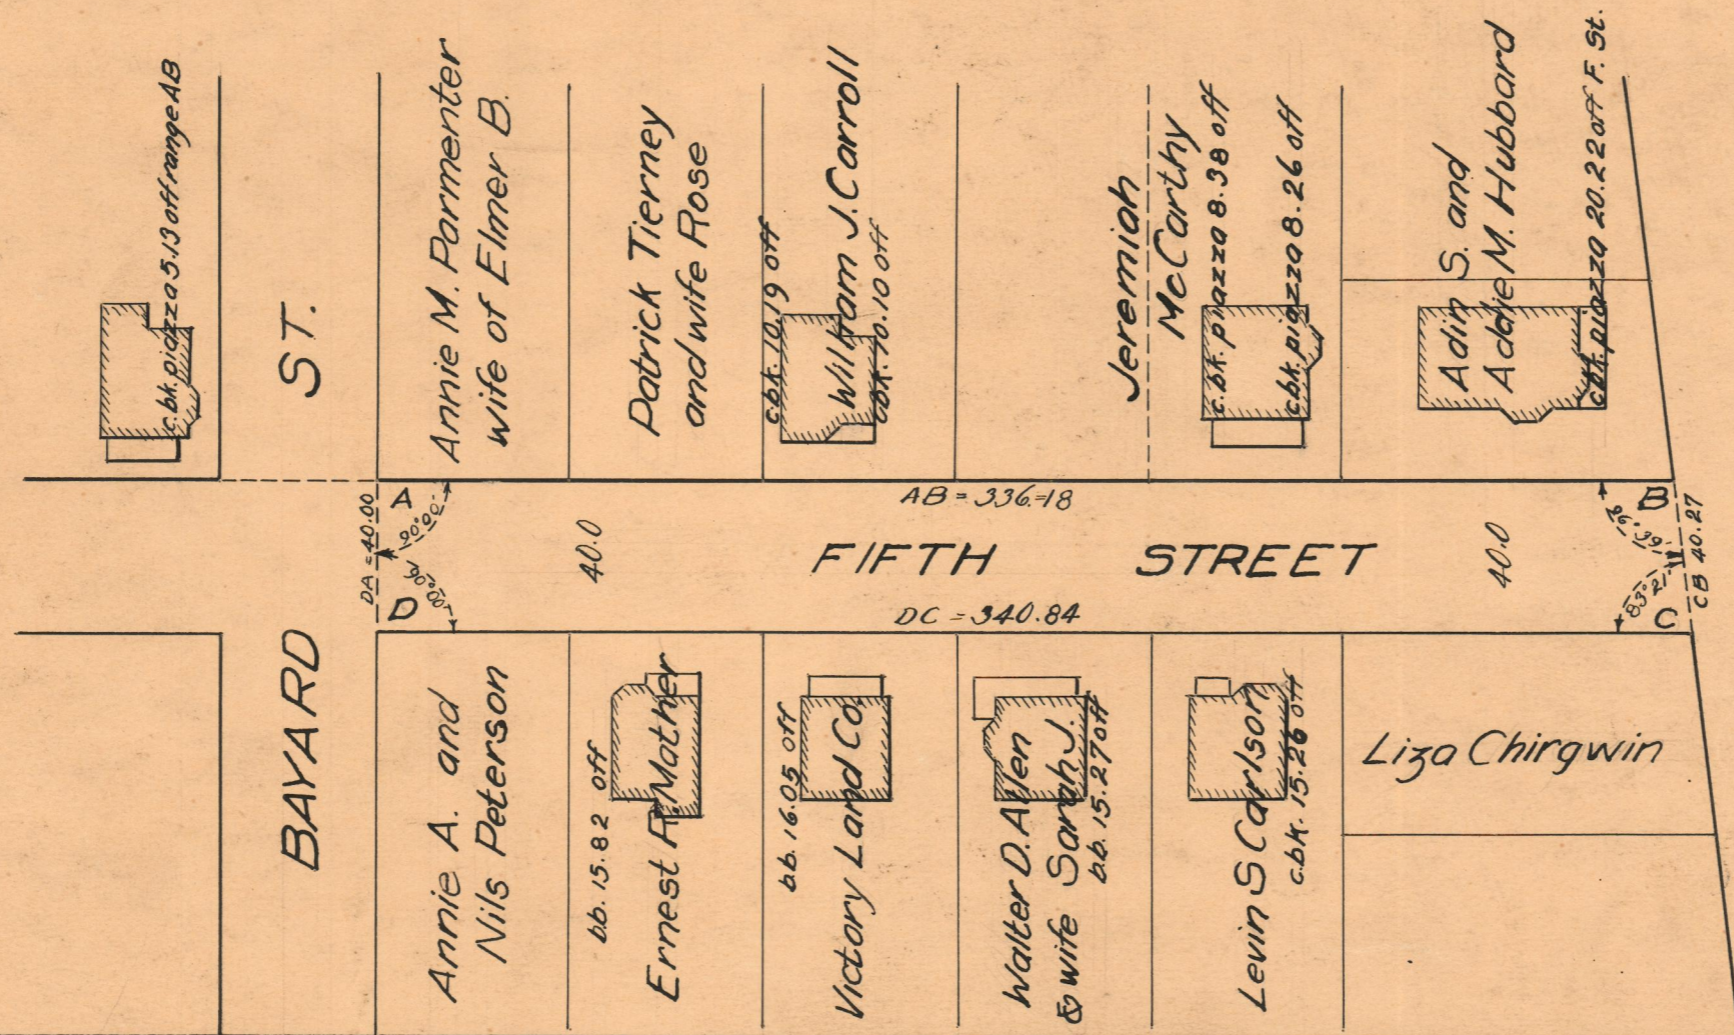 c.bk. piazza 5.13 off range AB
ST.
Annie M. Parmenter
wife of Elmer B.
Patrick Tierney
and wife Rose
c.bk. 10.19 off
William J. Carroll
c.bk. 10.10 off
Jeremiah
McCarthy
c.bk. piazza 8.38 off
c.bk. piazza 8.26 off
Adin S. and
Addie M. Hubbard
c.bk. piazza 20.22 off F. St.
A
AB = 336.18
B
DA = 40.00
90°00'
90°00'
40.0
FIFTH STREET
40.0
96°39'
83°21'
CB 40.27
D
DC = 340.84
C
BAYARD
Annie A. and
Nils Peterson
b.b. 15.82 off
Ernest R. Mather
b.b. 16.05 off
Victory Land Co.
Walter D. Allen
& wife Sarah J.
b.b. 15.27 off
Levin S Carlson
c.bk. 15.26 off
Liza Chirgwin